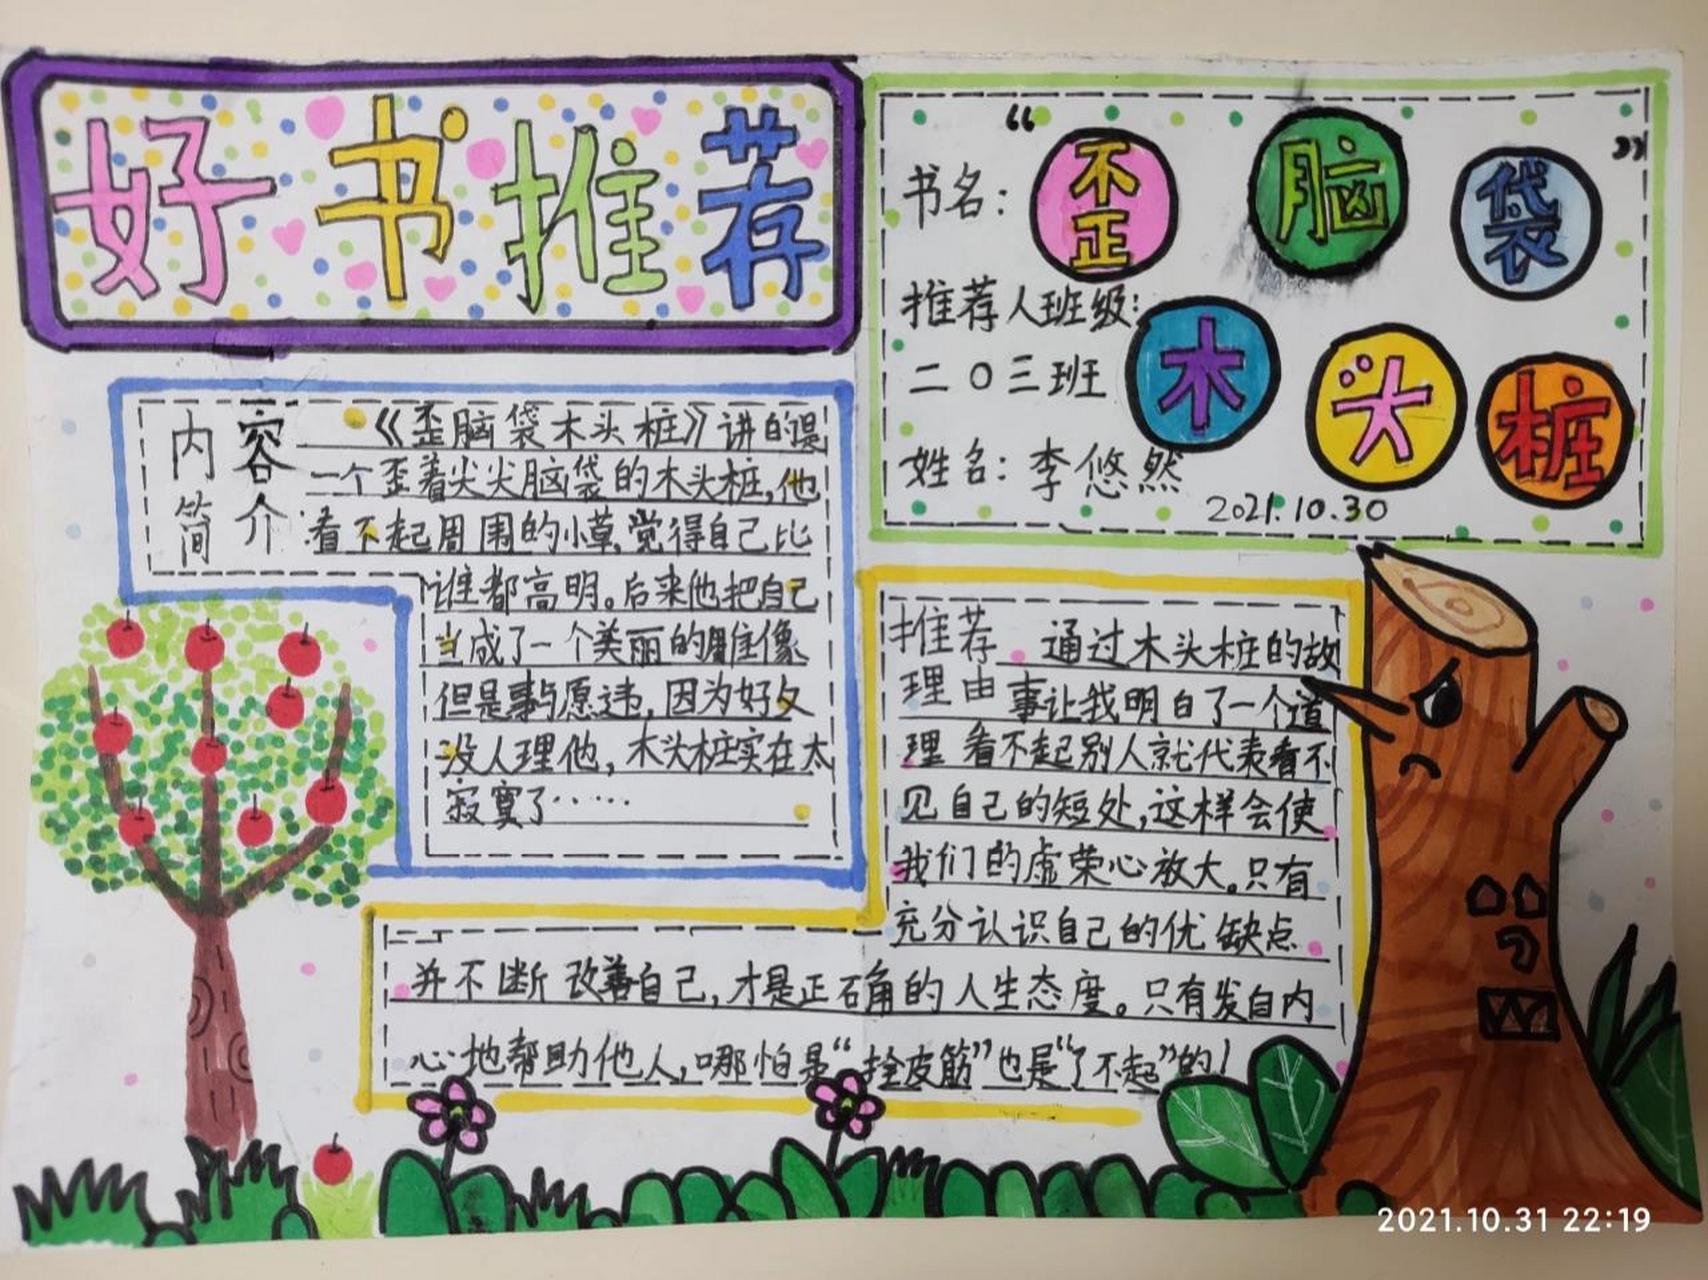 好书推荐
书名：“歪脑袋
木头桩”
推荐人班级：
二〇三班
姓名：李悠然
2021.10.30
内容简介
《歪脑袋木头桩》讲的是
一个歪着尖尖脑袋的木头桩，他
看不起周围的小草，觉得自己比
谁都高明。后来他把自己
当成了一个美丽的雕像
但是事与愿违，因为好久
没人理他，木头桩实在太
寂寞了……
推荐理由
通过木头桩的故
事让我明白了一个道
理 看不起别人就代表看不
见自己的短处，这样会使
我们的虚荣心放大。只有
充分认识自己的优缺点
并不断改善自己，才是正确的人生态度。只有发自内
心地帮助他人，哪怕是“拴皮筋”也是“了不起”的！
2021.10.31 22:19